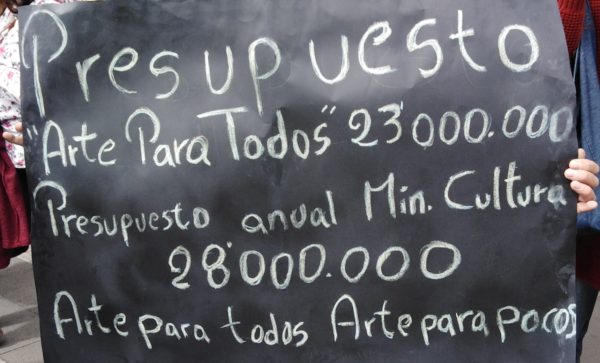 Presupuesto
"Arte Para Todos" 23'000.000
Presupuesto anual Min. Cultura
28'000.000
Arte para todos Arte para pocos